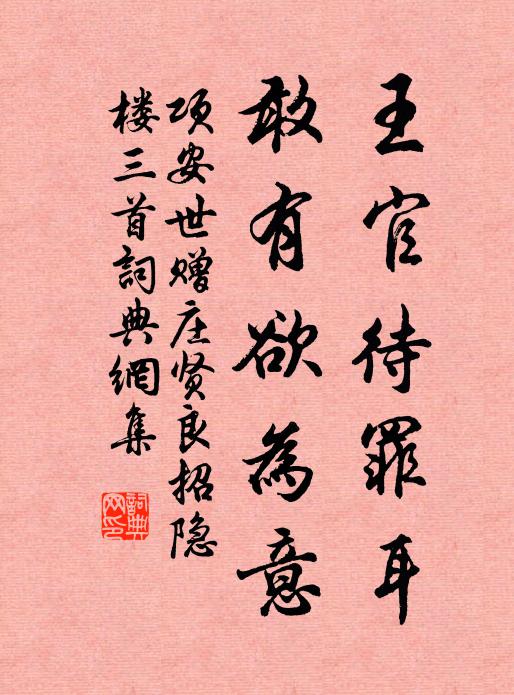 王官待罪耳
敢有欲為意
项安世赠庄贤良招隐
楼三首詞典網集
詞典
网印